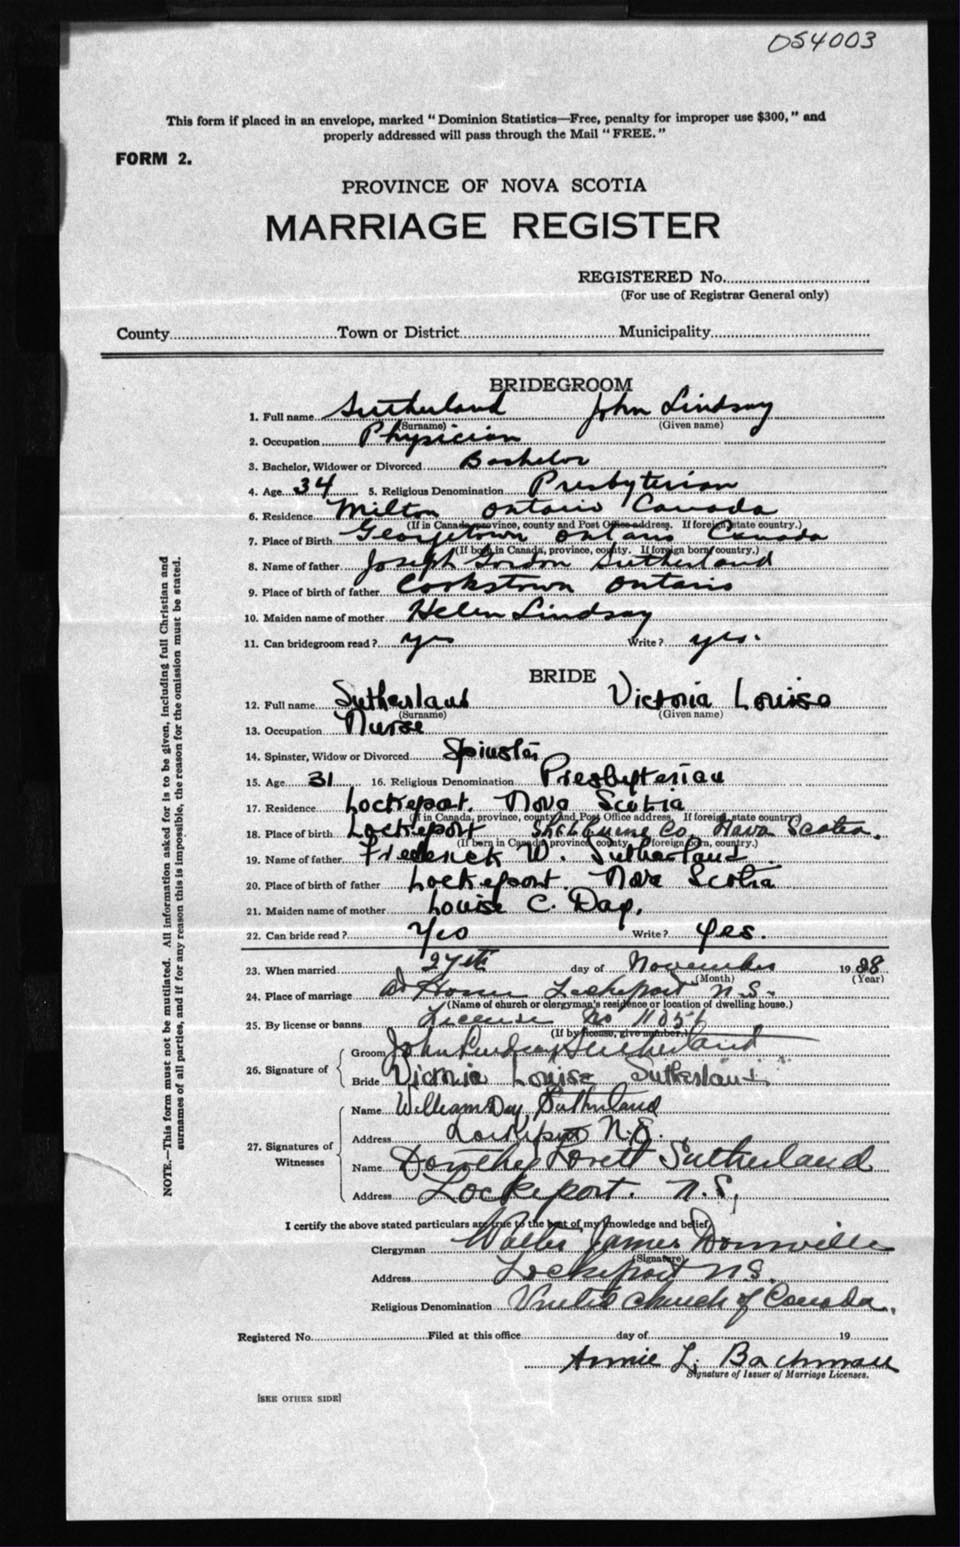 054003
This form if placed in an envelope, marked "Dominion Statistics—Free, penalty for improper use $300," and
properly addressed will pass through the Mail "FREE."
FORM 2.
PROVINCE OF NOVA SCOTIA
MARRIAGE REGISTER
REGISTERED No.
(For use of Registrar General only)
County Town or District Municipality
BRIDEGROOM
1. Full name Sutherland John Lindsay
(Surname) (Given name)
2. Occupation Physician
3. Bachelor, Widower or Divorced Bachelor
4. Age 34 5. Religious Denomination Presbyterian
6. Residence Milton Ontario Canada
(If in Canada, province, county and Post Office address. If foreign state country.)
7. Place of Birth Georgetown Ontario Canada
(If born in Canada, province, county. If foreign born, country.)
8. Name of father Joseph Gordon Sutherland
9. Place of birth of father Cookstown Ontario
10. Maiden name of mother Helen Lindsay
11. Can bridegroom read? yes Write? yes.
BRIDE
12. Full name Sutherland Victoria Louise
(Surname) (Given name)
13. Occupation Nurse
14. Spinster, Widow or Divorced Spinster
15. Age 31 16. Religious Denomination Presbyterian
17. Residence Lockeport. Nova Scotia
(If in Canada, province, county and Post Office address. If foreign state country)
18. Place of birth Lockeport Shelburne Co. Nova Scotia.
(If born in Canada, province, county. If foreign born, country.)
19. Name of father Frederick W. Sutherland
20. Place of birth of father Lockeport. Nova Scotia
21. Maiden name of mother Louise C. Day.
22. Can bride read? Yes Write? Yes.
23. When married 27th day of November 1928
(Month) (Year)
24. Place of marriage At Home Lockeport N.S.
(Name of church or clergyman's residence or location of dwelling house.)
25. By license or banns License No 11051
(If by license, give number.)
26. Signature of
Groom John Lindsay Sutherland
Bride Victoria Louise Sutherland
27. Signatures of Witnesses
Name William Day Sutherland
Address Lockeport N.S.
Name Dorothy Lovett Sutherland
Address Lockeport. N.S.
I certify the above stated particulars are true to the best of my knowledge and belief.
Clergyman James Domville
(Signature)
Address Lockeport N.S.
Religious Denomination United Church of Canada.
Registered No. Filed at this office day of 19
Annie L. Bachman
Signature of Issuer of Marriage Licenses.
[SEE OTHER SIDE]
NOTE.—This form must not be mutilated. All information asked for is to be given, including full Christian and
surnames of all parties, and if for any reason this is impossible, the reason for the omission must be stated.